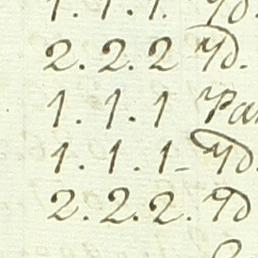 1. 1. 1. Yd.
2. 2. 2 Yd.
1. 1. 1 Pa
1. 1. 1- Yd.
2. 2. 2. Yd